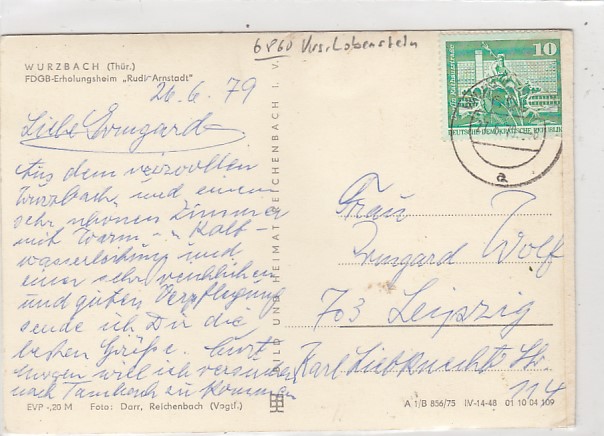 6860 Krs. Lobenstein
WURZBACH (Thür.)
FDGB-Erholungsheim „Rudi Arnstadt"
26.6.79
Liebe Irmgard
Aus dem reizvollen
Wurzbach und einem
sehr schönen Zimmer
mit Warm- u. Kalt-
wasserleitung und
einer sehr reichlichen
und guten Verpflegung
sende ich Dir die
besten Grüße.
morgen will ich versuchen
nach Tambach zu kommen
EVP -,20 M Foto: Darr, Reichenbach (Vogtl.)
BILD UND HEIMAT REICHENBACH I. V.
10
DEUTSCHE DEMOKRATISCHE REPUBLIK
a
Frau
Irmgard Wolf
703 Leipzig
Karl Liebknecht Str.
114
A 1/B 856/75 IV-14-48 01 10 04 109